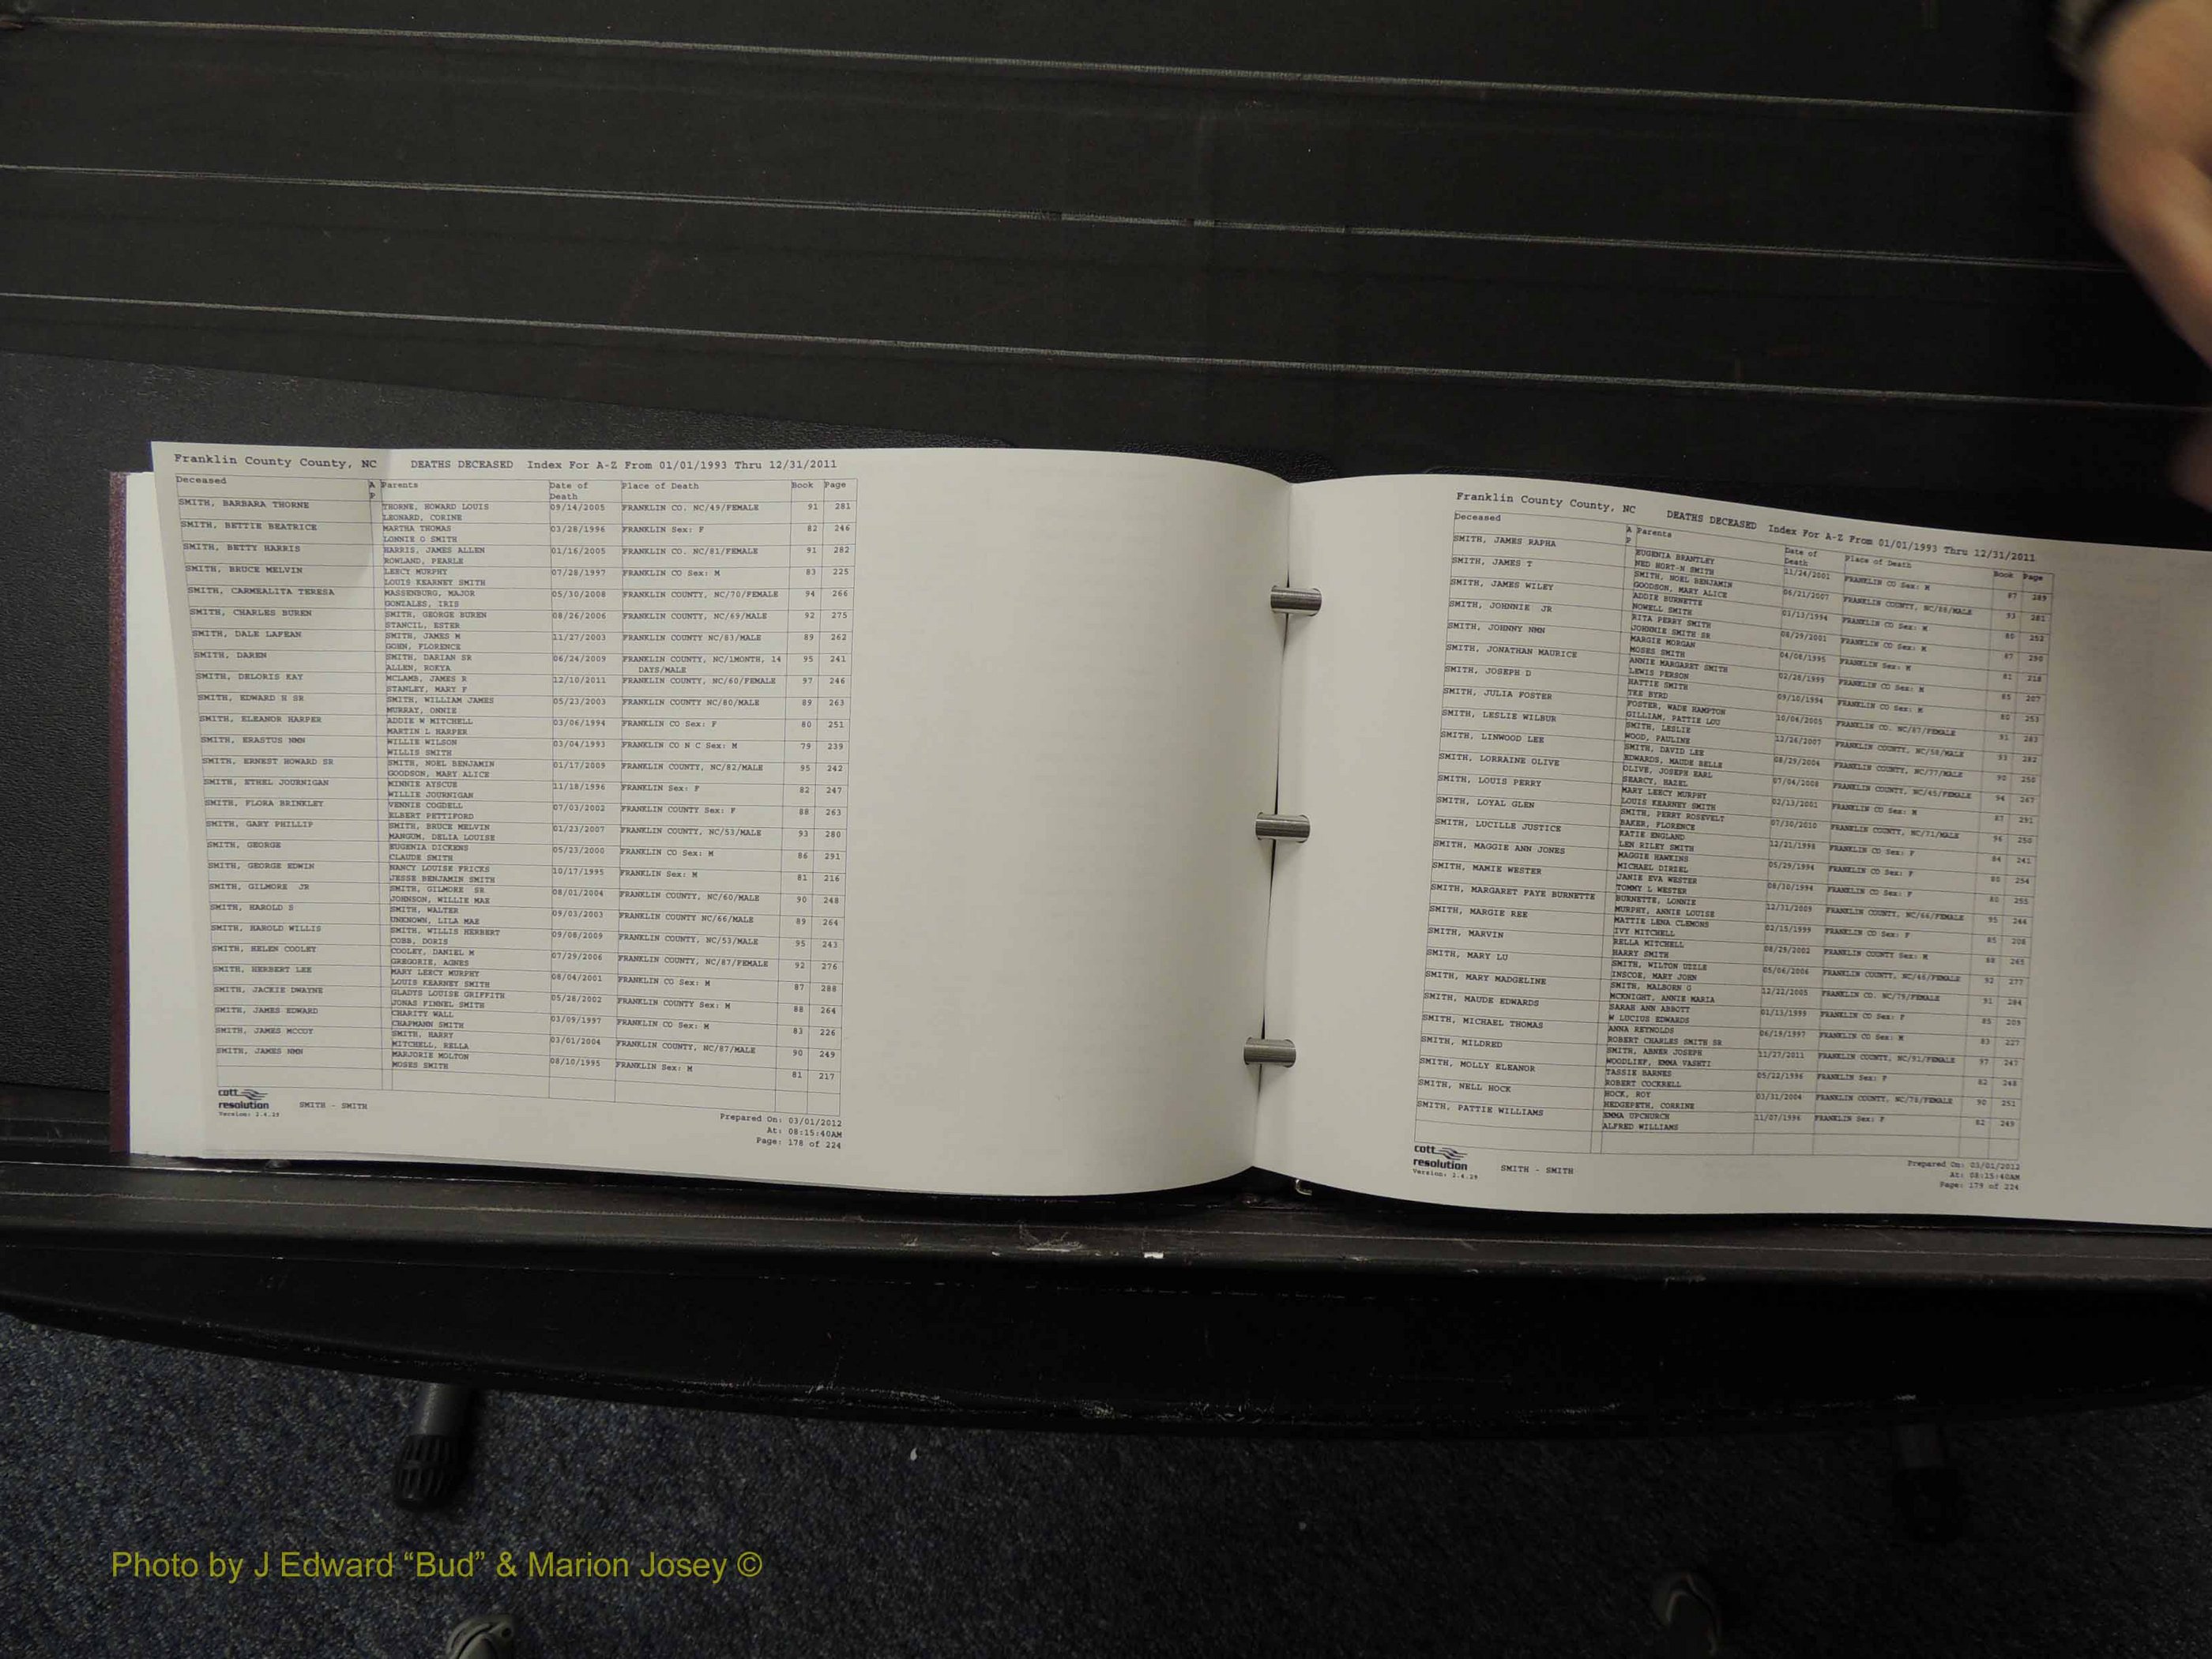 Franklin County County, NC DEATHS DECEASED Index For A-Z From 01/01/1993 Thru 12/31/2011
Deceased A Parents Date of Place of Death Book Page
P Death
SMITH, BARBARA THORNE THORNE, HOWARD LOUIS 09/14/2005 FRANKLIN CO. NC/49/FEMALE 91 281
LEONARD, CORINE
SMITH, BETTIE BEATRICE MARTHA THOMAS 03/28/1996 FRANKLIN Sex: F 82 246
LONNIE G SMITH
SMITH, BETTY HARRIS HARRIS, JAMES ALLEN 01/16/2005 FRANKLIN CO. NC/81/FEMALE 91 282
ROWLAND, PEARLE
SMITH, BRUCE MELVIN LEECY MURPHY 07/28/1997 FRANKLIN CO Sex: M 83 225
LOUIS KEARNEY SMITH
SMITH, CARMEALITA TERESA MASSENBURG, MAJOR 05/30/2008 FRANKLIN COUNTY, NC/70/FEMALE 94 266
GONZALES, IRIS
SMITH, CHARLES BUREN SMITH, GEORGE BUREN 08/26/2006 FRANKLIN COUNTY, NC/69/MALE 92 275
STANCIL, ESTER
SMITH, DALE LAFEAN SMITH, JAMES M 11/27/2003 FRANKLIN COUNTY NC/83/MALE 89 262
GOHN, FLORENCE
SMITH, DAREN SMITH, DARIAN SR 06/24/2009 FRANKLIN COUNTY, NC/1MONTH, 14 95 241
ALLEN, ROKYA DAYS/MALE
SMITH, DELORIS KAY MCLAMB, JAMES R 12/10/2011 FRANKLIN COUNTY, NC/60/FEMALE 97 246
STANLEY, MARY F
SMITH, EDWARD H SR SMITH, WILLIAM JAMES 05/23/2003 FRANKLIN COUNTY NC/80/MALE 89 263
MURRAY, ONNIE
SMITH, ELEANOR HARPER ADDIE W MITCHELL 03/06/1994 FRANKLIN CO Sex: F 80 251
MARTIN L HARPER
SMITH, ERASTUS NMN WILLIE WILSON 03/04/1993 FRANKLIN CO N C Sex: M 79 239
WILLIS SMITH
SMITH, ERNEST HOWARD SR SMITH, NOEL BENJAMIN 01/17/2009 FRANKLIN COUNTY, NC/82/MALE 95 242
GOODSON, MARY ALICE
SMITH, ETHEL JOURNIGAN MINNIE AYSCUE 11/18/1996 FRANKLIN Sex: F 82 247
WILLIE JOURNIGAN
SMITH, FLORA BRINKLEY VENNIE COGDELL 07/03/2002 FRANKLIN COUNTY Sex: F 88 263
ELBERT PETTIFORD
SMITH, GARY PHILLIP SMITH, BRUCE MELVIN 01/23/2007 FRANKLIN COUNTY, NC/53/MALE 93 280
MANGUM, DELIA LOUISE
SMITH, GEORGE EUGENIA DICKENS 05/23/2000 FRANKLIN CO Sex: M 86 291
CLAUDE SMITH
SMITH, GEORGE EDWIN NANCY LOUISE FRICKS 10/17/1995 FRANKLIN Sex: M 81 216
JESSE BENJAMIN SMITH
SMITH, GILMORE JR SMITH, GILMORE SR 08/01/2004 FRANKLIN COUNTY, NC/60/MALE 90 248
JOHNSON, WILLIE MAE
SMITH, HAROLD S SMITH, WALTER 09/03/2003 FRANKLIN COUNTY NC/66/MALE 89 264
UNKNOWN, LILA MAE
SMITH, HAROLD WILLIS SMITH, WILLIS HERBERT 09/08/2009 FRANKLIN COUNTY, NC/53/MALE 95 243
COBB, DORIS
SMITH, HELEN COOLEY COOLEY, DANIEL M 07/29/2006 FRANKLIN COUNTY, NC/87/FEMALE 92 276
GREGORIE, AGNES
SMITH, HERBERT LEE MARY LEECY MURPHY 08/04/2001 FRANKLIN CO Sex: M 87 288
LOUIS KEARNEY SMITH
SMITH, JACKIE DWAYNE GLADYS LOUISE GRIFFITH 05/28/2002 FRANKLIN COUNTY Sex: M 88 264
JONAS FINNEL SMITH
SMITH, JAMES EDWARD CHARITY WALL 03/09/1997 FRANKLIN CO Sex: M 83 226
CHAPMANN SMITH
SMITH, JAMES MCCOY SMITH, HARRY 03/01/2004 FRANKLIN COUNTY, NC/87/MALE 90 249
MITCHELL, RELLA
SMITH, JAMES NMN MARJORIE MOLTON 08/10/1995 FRANKLIN Sex: M 81 217
MOSES SMITH
cott
resolution SMITH - SMITH
Version: 2.4.29
Prepared On: 03/01/2012
At: 08:15:40AM
Page: 178 of 224
Franklin County County, NC DEATHS DECEASED Index For A-Z From 01/01/1993 Thru 12/31/2011
Deceased A Parents Date of Place of Death Book Page
P Death
SMITH, JAMES RAPHA EUGENIA BRANTLEY 11/24/2001 FRANKLIN CO Sex: M 87 289
NED HORT-N SMITH
SMITH, JAMES T SMITH, NOEL BENJAMIN 06/21/2007 FRANKLIN COUNTY, NC/88/MALE 93 281
GOODSON, MARY ALICE
SMITH, JAMES WILEY ADDIE BURNETTE 01/13/1994 FRANKLIN CO Sex: M 80 252
NOWELL SMITH
SMITH, JOHNNIE JR RITA PERRY SMITH 08/29/2001 FRANKLIN CO Sex: M 87 290
JOHNNIE SMITH SR
SMITH, JOHNNY NMN MARGIE MORGAN 04/08/1995 FRANKLIN Sex: M 81 218
MOSES SMITH
SMITH, JONATHAN MAURICE ANNIE MARGARET SMITH 02/28/1999 FRANKLIN CO Sex: M 85 207
LEWIS PERSON
SMITH, JOSEPH D HATTIE SMITH 09/10/1994 FRANKLIN CO Sex: M 80 253
TKE BYRD
SMITH, JULIA FOSTER FOSTER, WADE HAMPTON 10/04/2005 FRANKLIN CO. NC/87/FEMALE 91 283
GILLIAM, PATTIE LOU
SMITH, LESLIE WILBUR SMITH, LESLIE 12/26/2007 FRANKLIN COUNTY, NC/58/MALE 93 282
WOOD, PAULINE
SMITH, LINWOOD LEE SMITH, DAVID LEE 08/29/2004 FRANKLIN COUNTY, NC/77/MALE 90 250
EDWARDS, MAUDE BELLE
SMITH, LORRAINE OLIVE OLIVE, JOSEPH EARL 07/04/2008 FRANKLIN COUNTY, NC/45/FEMALE 94 267
SEARCY, HAZEL
SMITH, LOUIS PERRY MARY LEECY MURPHY 02/13/2001 FRANKLIN CO Sex: M 87 291
LOUIS KEARNEY SMITH
SMITH, LOYAL GLEN SMITH, PERRY ROSEVELT 07/30/2010 FRANKLIN COUNTY, NC/71/MALE 96 250
BAKER, FLORENCE
SMITH, LUCILLE JUSTICE KATIE ENGLAND 12/21/1998 FRANKLIN CO Sex: F 84 241
LEN RILEY SMITH
SMITH, MAGGIE ANN JONES MAGGIE HAWKINS 05/29/1994 FRANKLIN CO Sex: F 80 254
MICHAEL DIRIEL
SMITH, MAMIE WESTER JANIE EVA WESTER 08/30/1994 FRANKLIN CO Sex: F 80 255
TOMMY L WESTER
SMITH, MARGARET FAYE BURNETTE BURNETTE, LONNIE 12/31/2009 FRANKLIN COUNTY, NC/66/FEMALE 95 244
MURPHY, ANNIE LOUISE
SMITH, MARGIE REE MATTIE LENA CLEMONS 02/15/1999 FRANKLIN CO Sex: F 85 208
IVY MITCHELL
SMITH, MARVIN RELLA MITCHELL 08/29/2002 FRANKLIN COUNTY Sex: M 88 265
HARRY SMITH
SMITH, MARY LU SMITH, WILTON UZZLE 05/06/2006 FRANKLIN COUNTY, NC/46/FEMALE 92 277
INSCOE, MARY JOHN
SMITH, MARY MADGELINE SMITH, MALBORN G 12/22/2005 FRANKLIN CO. NC/79/FEMALE 91 284
MCKNIGHT, ANNIE MARIA
SMITH, MAUDE EDWARDS SARAH ANN ABBOTT 01/13/1999 FRANKLIN CO Sex: F 85 209
W LUCIUS EDWARDS
SMITH, MICHAEL THOMAS ANNA REYNOLDS 06/19/1997 FRANKLIN CO Sex: M 83 227
ROBERT CHARLES SMITH SR
SMITH, MILDRED SMITH, ABNER JOSEPH 11/27/2011 FRANKLIN COUNTY, NC/91/FEMALE 97 247
WOODLIEF, EMMA VASHTI
SMITH, MOLLY ELEANOR TASSIE BARNES 05/22/1996 FRANKLIN Sex: F 82 248
ROBERT COCKRELL
SMITH, NELL HOCK HOCK, ROY 03/31/2004 FRANKLIN COUNTY, NC/78/FEMALE 90 251
HEDGEPETH, CORRINE
SMITH, PATTIE WILLIAMS EMMA UPCHURCH 11/07/1996 FRANKLIN Sex: F 82 249
ALFRED WILLIAMS
cott
resolution SMITH - SMITH
Version: 2.4.29
Prepared On: 03/01/2012
At: 08:15:40AM
Page: 179 of 224
Photo by J Edward “Bud” & Marion Josey ©